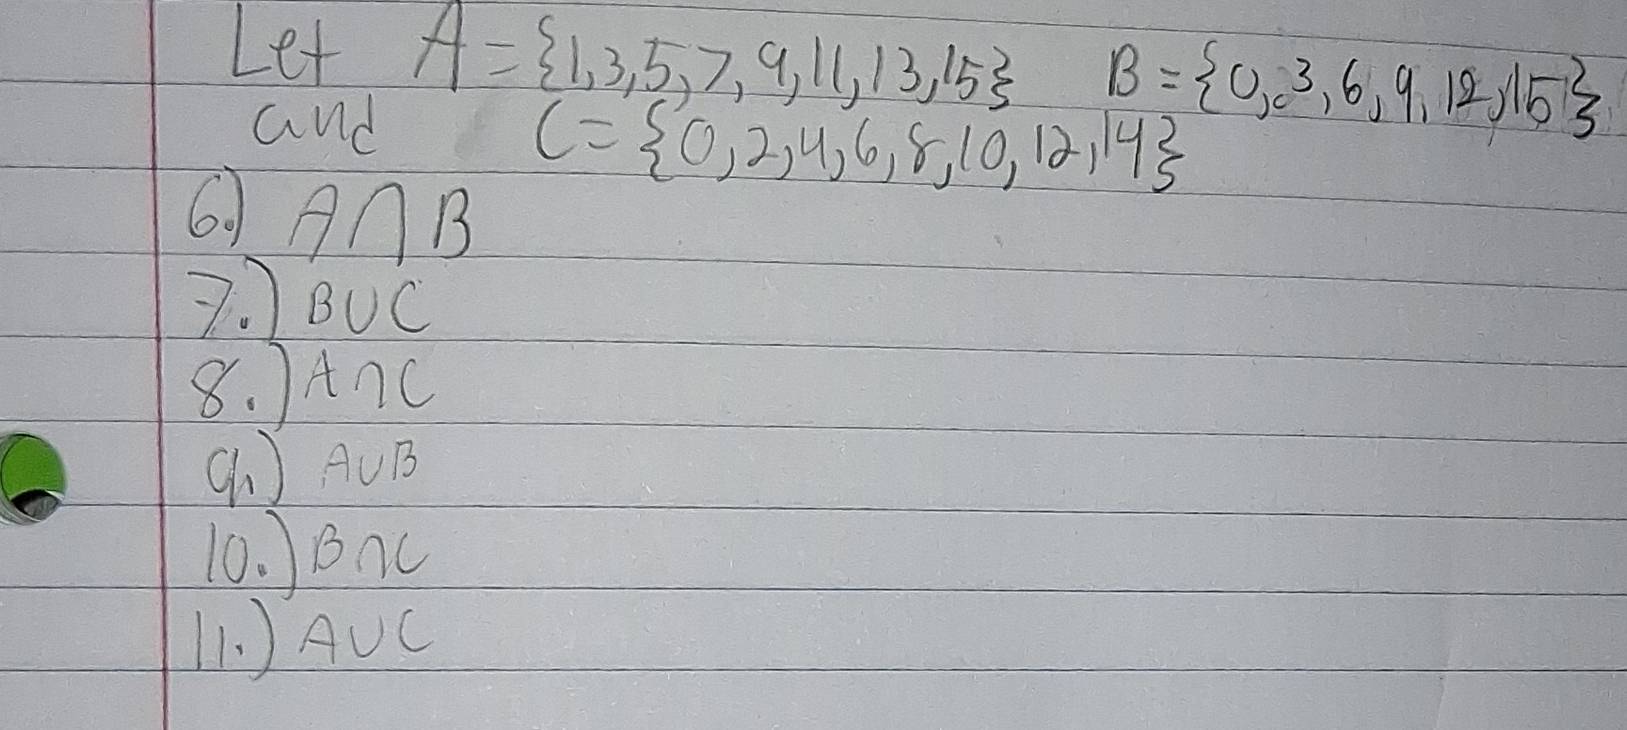 Let A = {1,3,5,7,9,11,13,15} B = {0,3,6,9,12,15}
and C = {0,2,4,6,8,10,12,14}
6.) A∩B
7.) B∪C
8.) A∩C
9.) A∪B
10.) B∩C
11.) A∪C